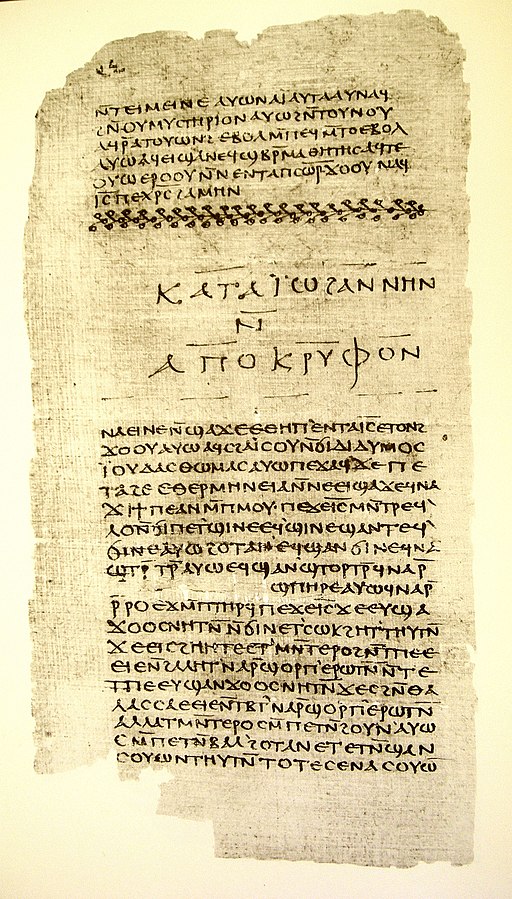 ⲛ̄ⲧⲉⲓⲙⲉⲓⲛⲉ ⲁⲩⲱ ⲛⲁⲓ̈ ⲁⲩⲧⲁⲁⲩ ⲛⲁϥ
ϩⲛ̄ ⲟⲩⲙⲩⲥⲧⲏⲣⲓⲟⲛ ⲁⲩⲱ ϩⲛ̄ ⲧⲟⲩⲛⲟⲩ
ⲁϥⲣ̄ⲁⲧⲟⲩⲱⲛϩ ⲉⲃⲟⲗ ⲙ̄ⲡⲉϥⲙ̄ⲧⲟ ⲉⲃⲟⲗ
ⲁⲩⲱ ⲁϥⲉⲓ ϣⲁ ⲛⲉϥϣⲃⲣ̄ⲙⲁⲑⲏⲧⲏⲥ ⲁϥⲧⲉ
ⲟⲩⲱ ⲉⲣⲟⲟⲩ ⲛ̄ⲛⲉⲛⲧⲁⲡⲥⲱ̅ⲣ̅ ϫⲟⲟⲩ ⲛⲁϥ
ⲓ̅ⲥ̅ ⲡⲉⲭ̅ⲣ̅ⲥ̅ ϩⲁⲙⲏⲛ
ⲕⲁⲧⲁ ⲓ̈ⲱϩⲁⲛⲛⲏⲛ
ⲛ̄
ⲁⲡⲟⲕⲣⲩⲫⲟⲛ
ⲛⲁⲉⲓ ⲛⲉ ⲛ̄ϣⲁϫⲉ ⲉⲑⲏⲡ ⲉⲛⲧⲁⲓ̅ⲥ̅ ⲉⲧⲟⲛϩ
ϫⲟⲟⲩ ⲁⲩⲱ ⲁϥⲥϩⲁⲓ̈ⲥⲟⲩ ⲛ̄ϭⲓ ⲇⲓⲇⲩⲙⲟⲥ
ⲓ̈ⲟⲩⲇⲁⲥ ⲑⲱⲙⲁⲥ ⲁⲩⲱ ⲡⲉϫⲁϥ ϫⲉ ⲡⲉ
ⲧⲁϩⲉ ⲉⲑⲉⲣⲙⲏⲛⲉⲓⲁ ⲛ̄ⲛⲉⲉⲓϣⲁϫⲉ ϥⲛⲁ
ϫⲓ ϯⲡⲉ ⲁⲛ ⲙ̄ⲡⲙⲟⲩ ⲡⲉϫⲉ ⲓ̅ⲥ̅ ⲙⲛ̄ⲧⲣⲉϥ
ⲗⲟ ⲛ̄ϭⲓ ⲡⲉⲧϣⲓⲛⲉ ⲉϥϣⲓⲛⲉ ϣⲁⲛⲧⲉϥ
ϭⲓⲛⲉ ⲁⲩⲱ ϩⲟⲧⲁⲛ ⲉϥϣⲁⲛϭⲓⲛⲉ ϥⲛⲁ
ϣⲧⲣ̄ⲧⲣ̄ ⲁⲩⲱ ⲉϥϣⲁⲛϣⲧⲟⲣⲧⲣ̄ ϥⲛⲁⲣ̄
ϣⲡⲏⲣⲉ ⲁⲩⲱ ϥⲛⲁⲣ̄
ⲣ̄ⲣⲟ ⲉϫⲙ̄ ⲡⲧⲏⲣϥ ⲡⲉϫⲉ ⲓ̅ⲥ̅ ϫⲉ ⲉⲩϣⲁ
ϫⲟⲟⲥ ⲛⲏⲧⲛ̄ ⲛ̄ϭⲓ ⲛⲉⲧⲥⲱⲕ ϩⲏⲧ ⲧⲏⲩⲧⲛ̄
ϫⲉ ⲉⲓⲥϩⲏⲏⲧⲉ ⲉⲧⲙⲛ̄ⲧⲉⲣⲟ ϩⲛ̄ ⲧⲡⲉ ⲉ
ⲉⲓⲉ ⲛ̄ϩⲁⲗⲏⲧ ⲛⲁⲣ̄ϣⲟⲣⲡ ⲉⲣⲱⲧⲛ̄ ⲛ̄ⲧⲉ
ⲧⲡⲉ ⲉⲩϣⲁⲛϫⲟⲟⲥ ⲛⲏⲧⲛ̄ ϫⲉ ⲥϩⲛ̄ ⲑⲁ
ⲗⲁⲥⲥⲁ ⲉⲉⲓⲉ ⲛ̄ⲧⲃⲧ ⲛⲁⲣ̄ϣⲟⲣⲡ ⲉⲣⲱⲧⲛ̄
ⲁⲗⲗⲁ ⲧⲙⲛ̄ⲧⲉⲣⲟ ⲥⲙ̄ⲡⲉⲧⲛ̄ϩⲟⲩⲛ ⲁⲩⲱ
ⲥⲙ̄ⲡⲉⲧⲛ̄ⲃⲁⲗ ϩⲟⲧⲁⲛ ⲉⲧⲉⲧⲛ̄ϣⲁⲛ
ⲥⲟⲩⲱⲛ ⲧⲏⲩⲧⲛ̄ ⲧⲟⲧⲉ ⲥⲉⲛⲁⲥⲟⲩⲱ